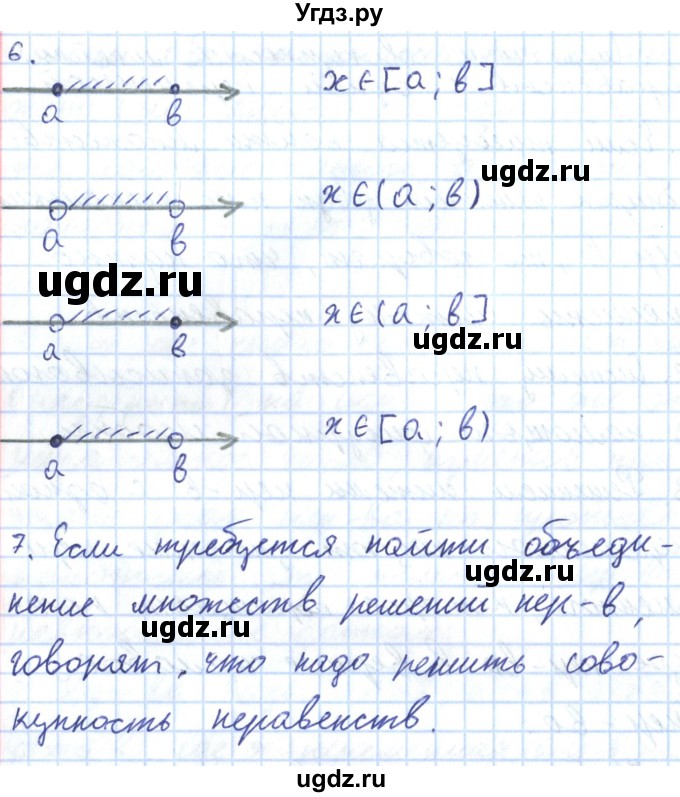 Угдз.ру
6.
a в x∈[a;в]
ugdz.ru
a в x∈(a;в)
ugdz.ru
a в x∈(a;в]
ugdz.ru
a в x∈[a;в)
7. Если требуется найти объеди-
ugdz.ru
нение множеств решений нер-в,
ugdz.ru
говорят, что надо решить сово-
купность неравенств.
ugdz.ru